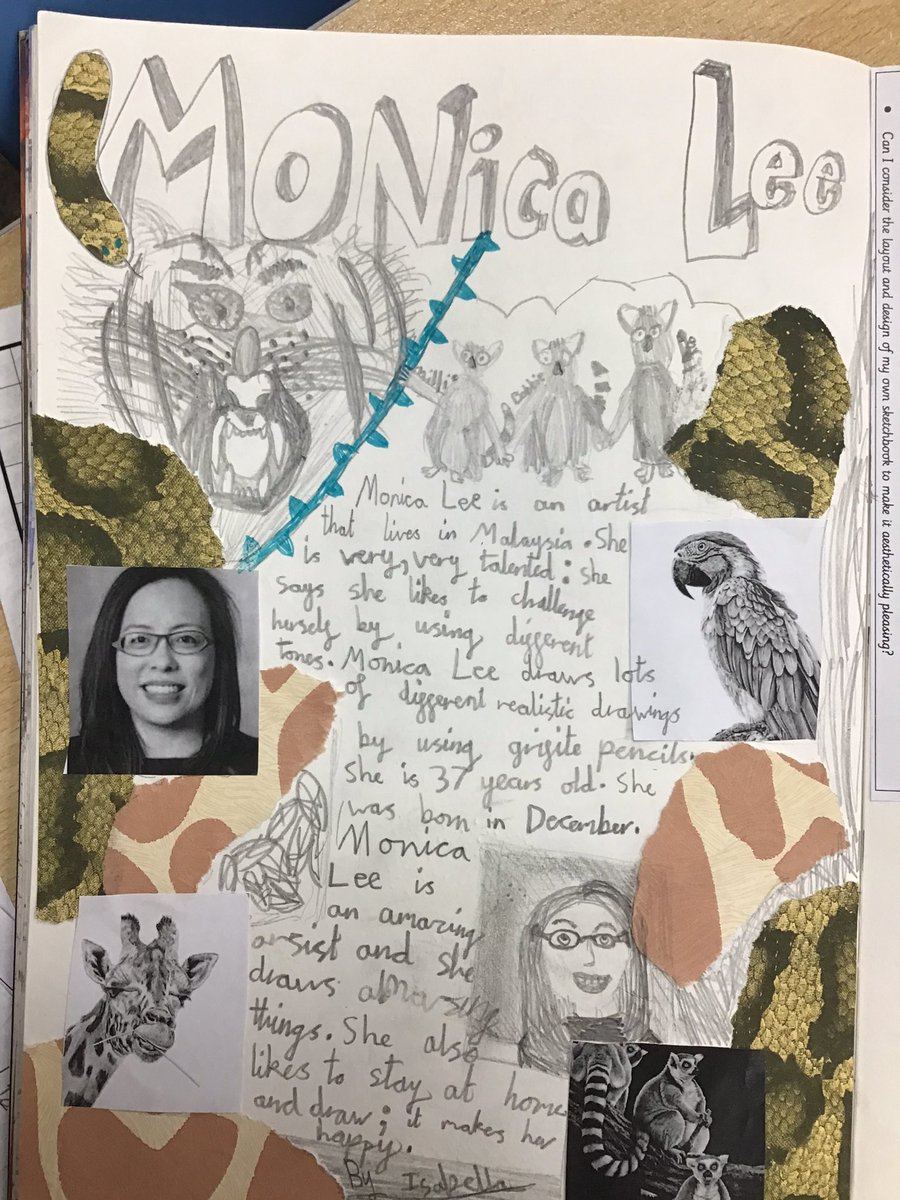 MONica Lee
Monica Lee is an artist
that lives in Malaysia. She
is very, very talented: she
says she likes to challenge
herself by using different
tones. Monica Lee draws lots
of different realistic drawings
by using grifite pencils.
She is 37 years old. She
was born in December.
Monica
Lee is
an amazing
arsist and she
draws
things. She also
likes to stay at home
and draw; it makes her
happy.
By Isabella
• Can I consider the layout and design of my own sketchbook to make it aesthetically pleasing?